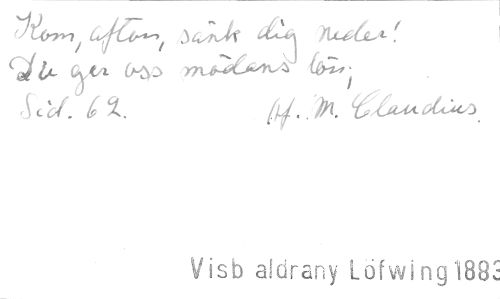 Kom, afton, sänk dig neder!
Du ger oss mödans lön;
Sid. 62. Af. M. Claudius.
Visb aldrany Löfwing 1883